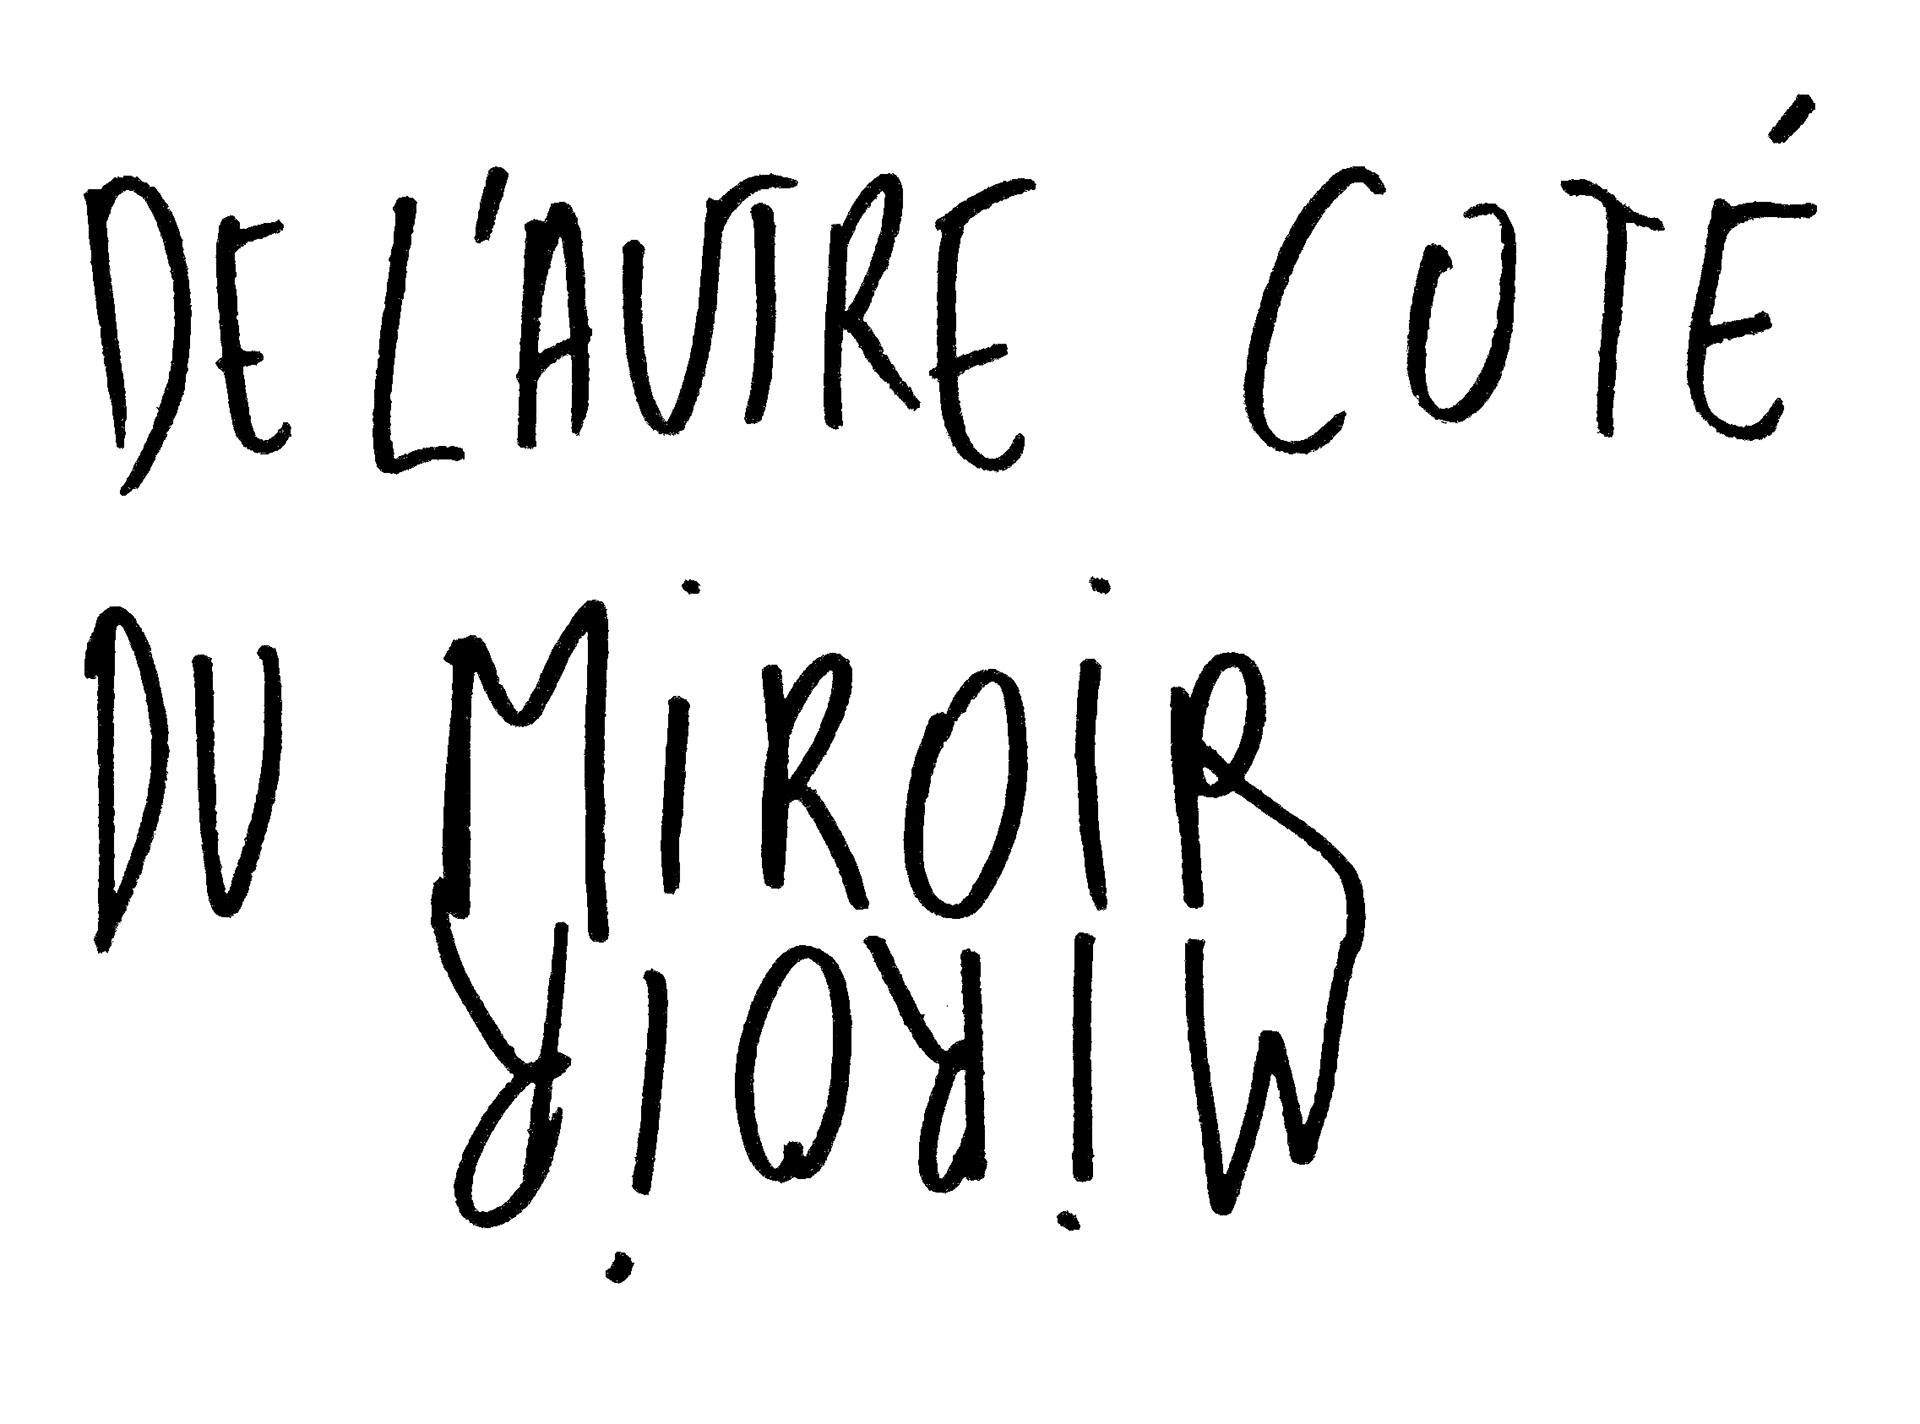 DE L'AUTRE COTÉ
DU MiROiR
MiROiR